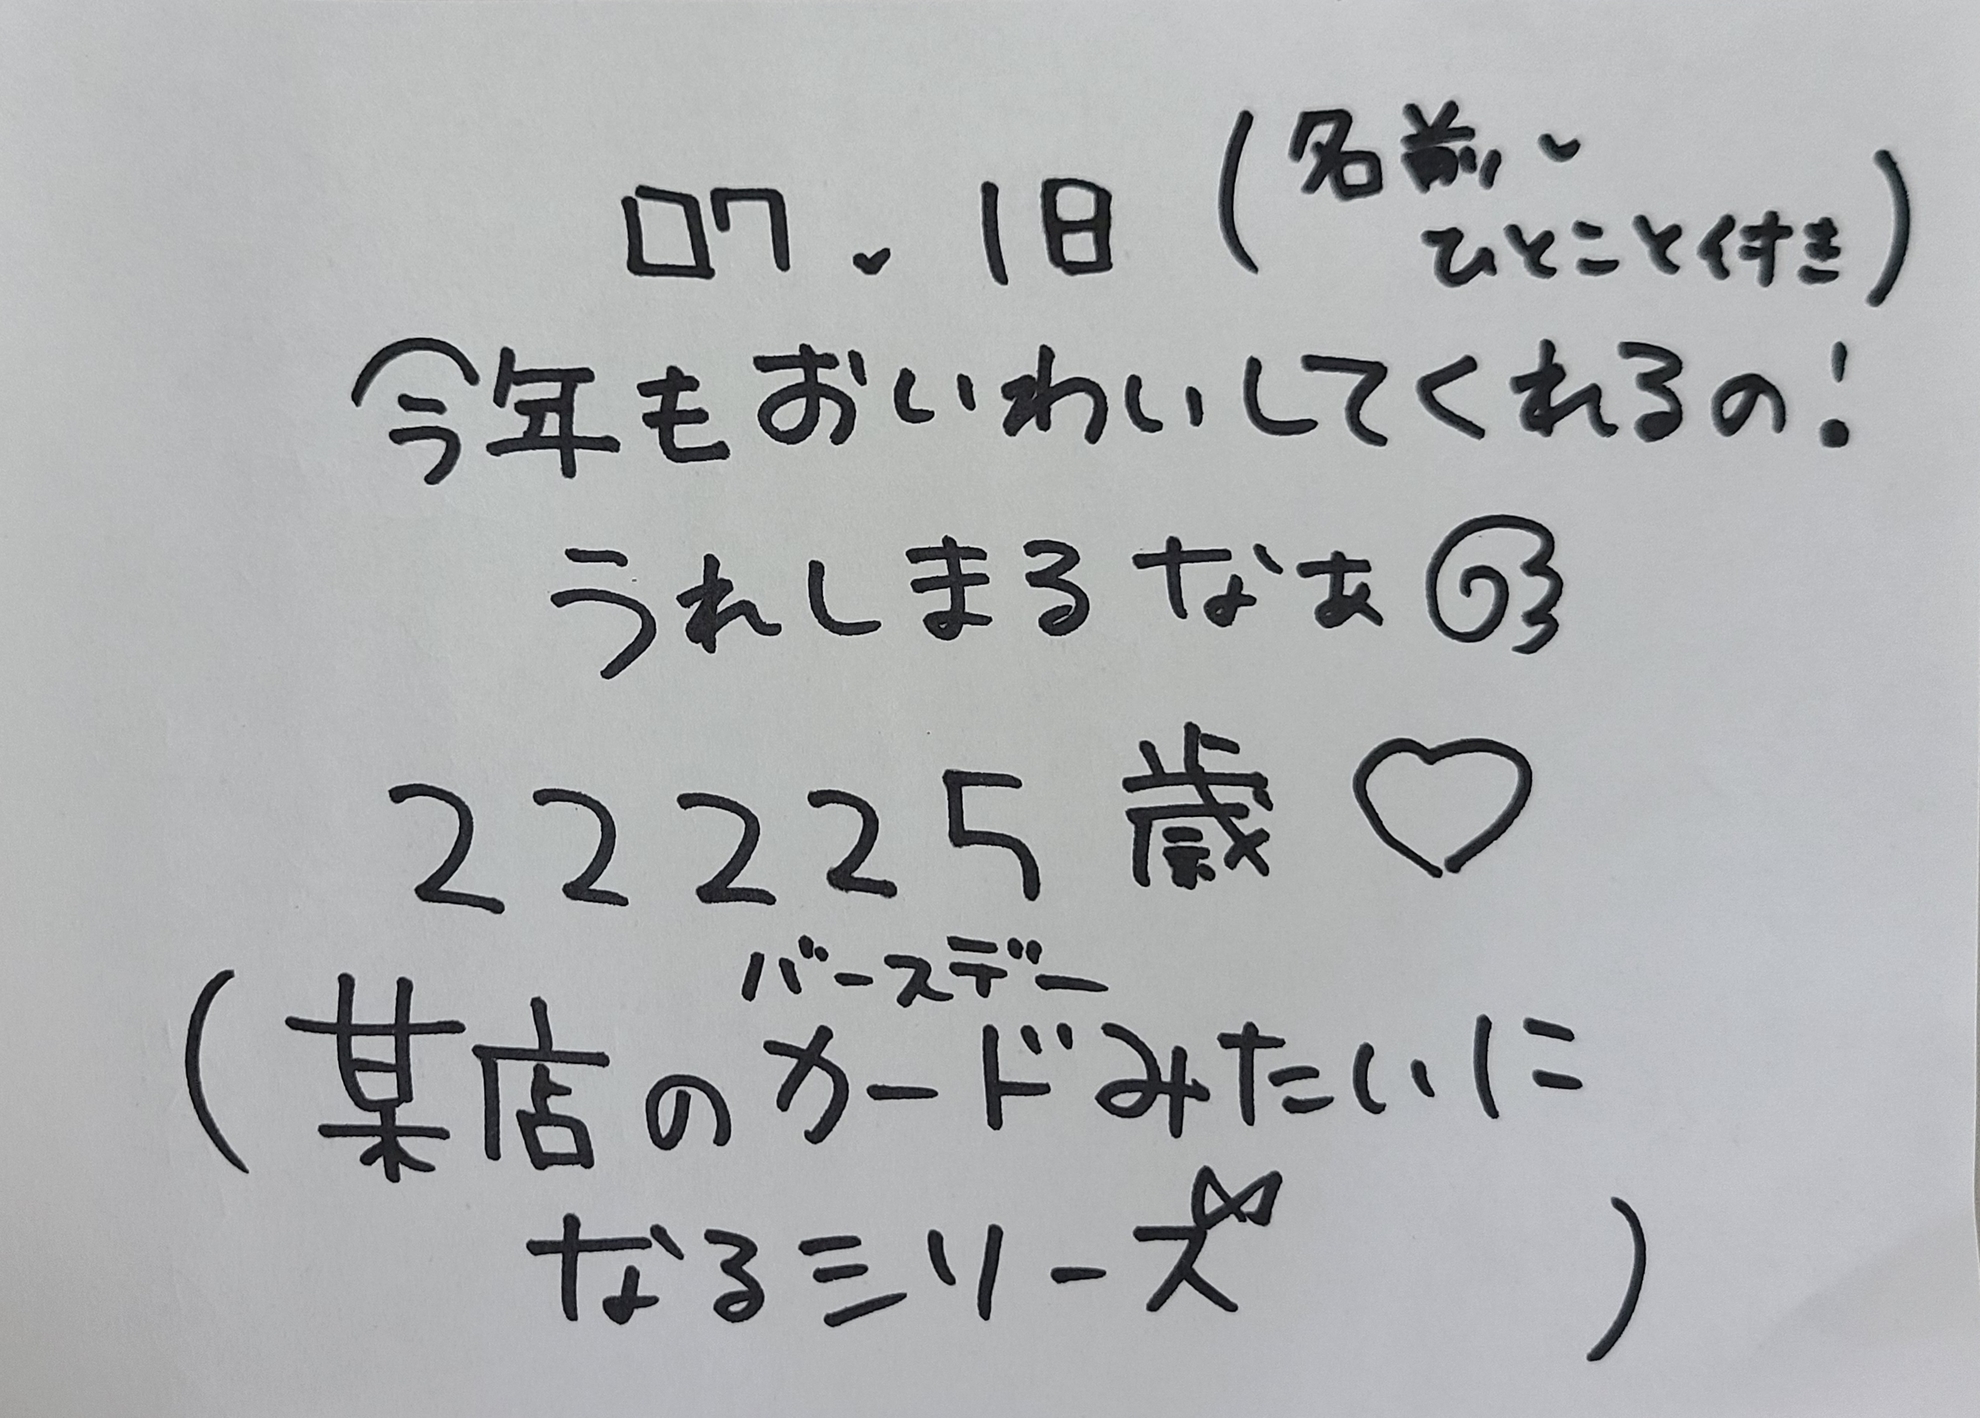 07.18(名前、
ひとこと付き)
今年もおいわいしてくれるの!
うれしまるなぁ
22225歳♡
バースデー
(某店のカードみたいに
なるシリーズ)